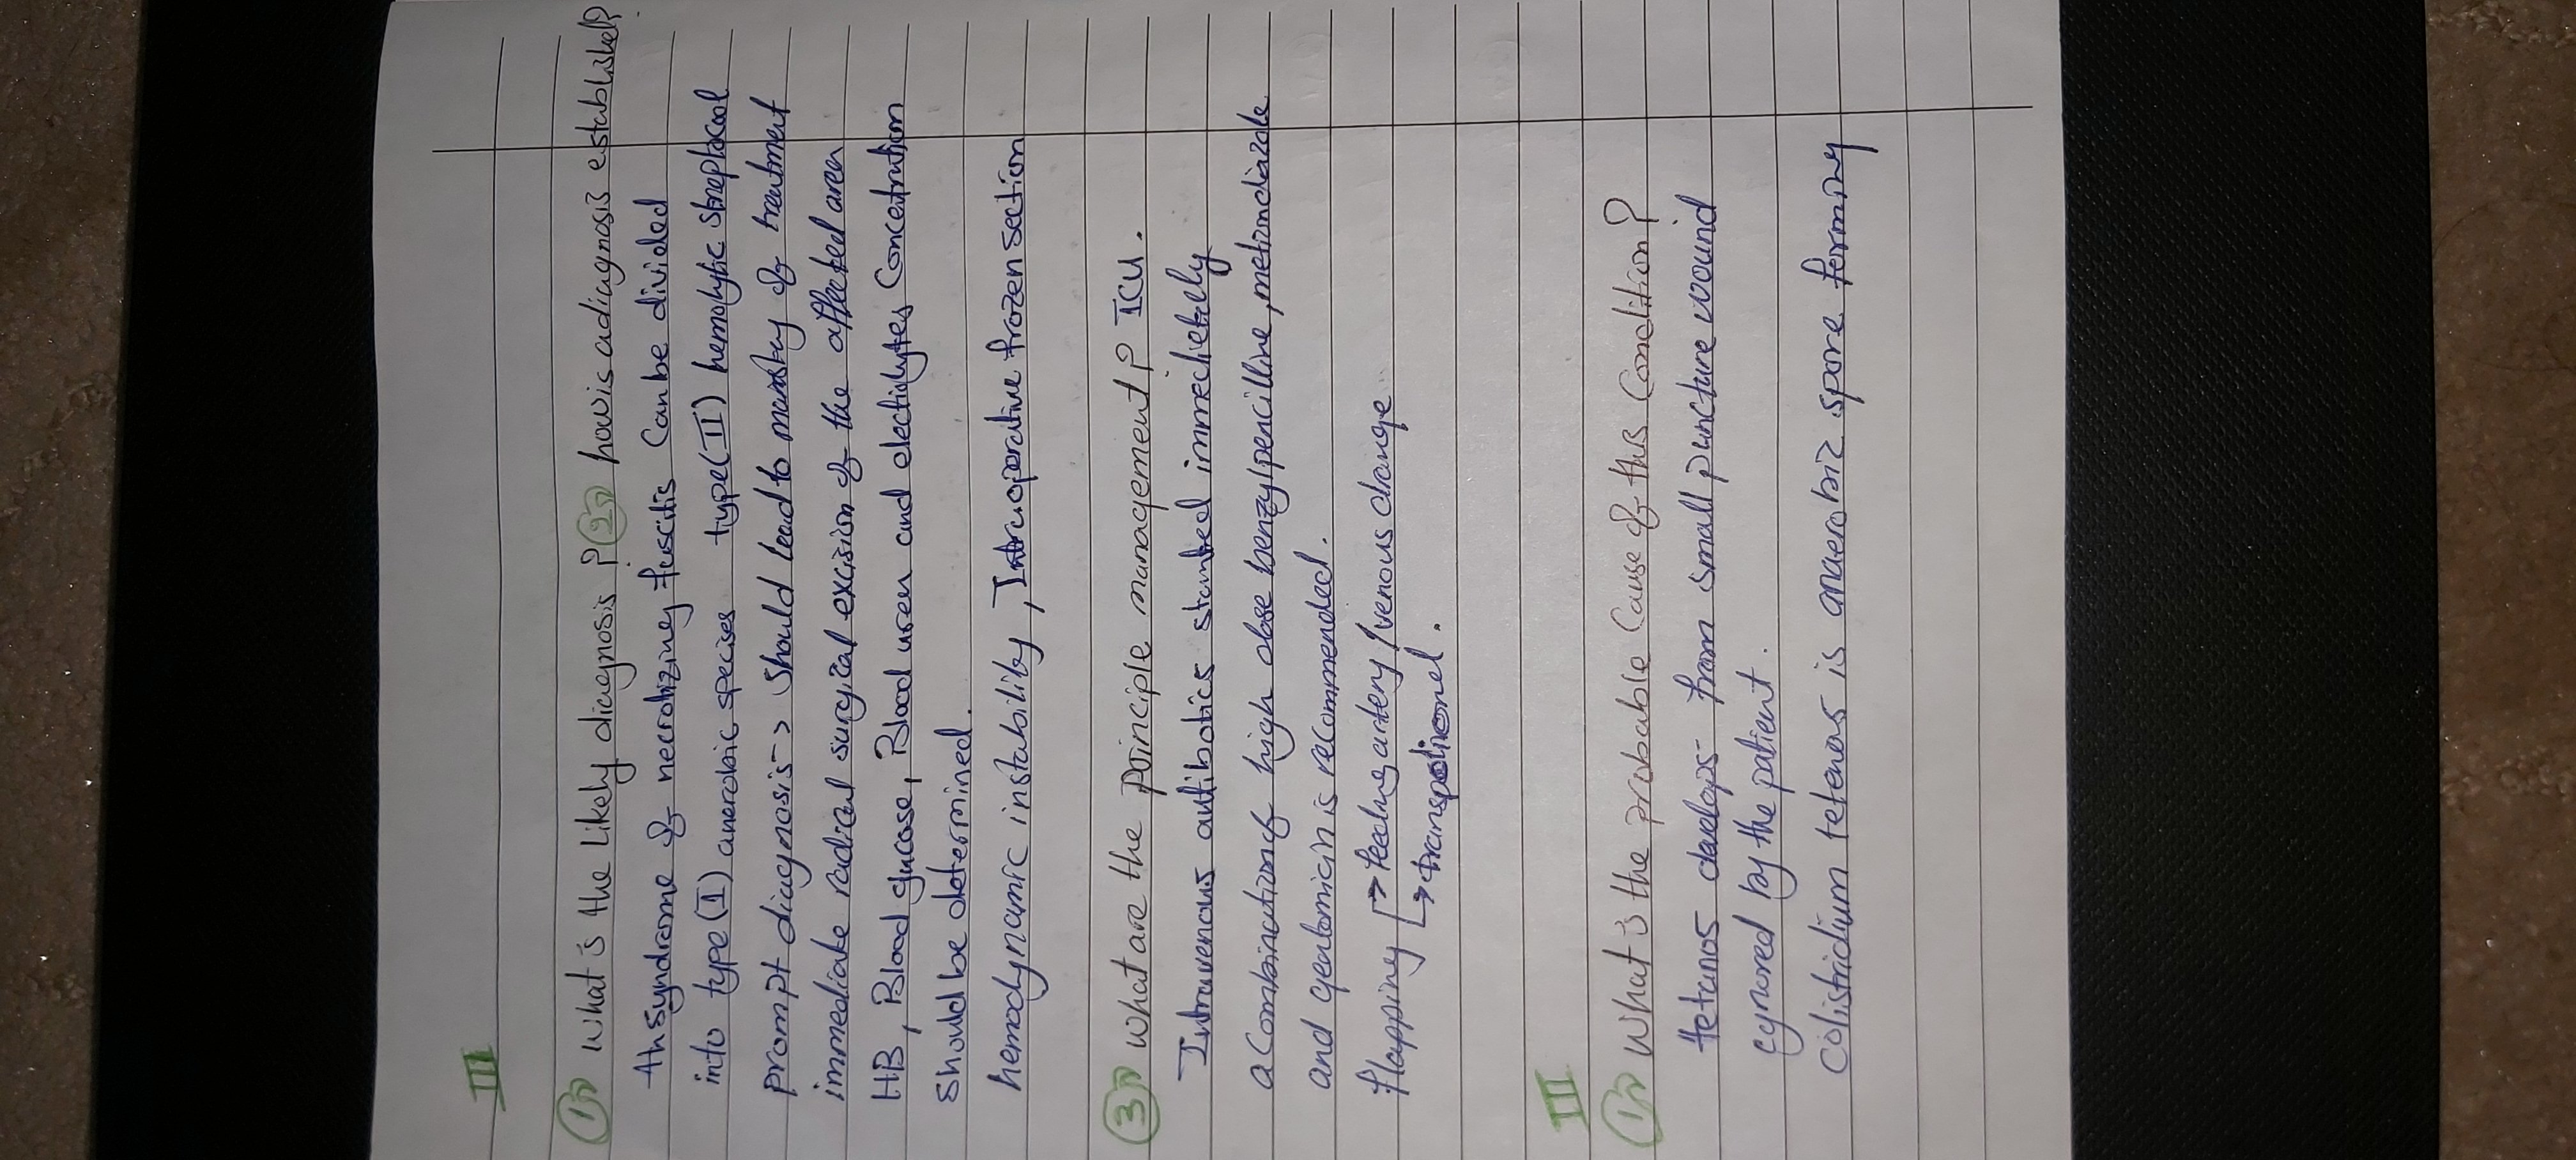 III
1 What is the likely diagnosis ? 2 how is a diagnosis established?
th syndrome of necrotizing fuscitis Can be divided
into type (I) anerobic species type (II) hemolytic strephocal
prompt diagnosis -> should lead to of treatment
immediate radical surgical excision of the affected area
HB, Blood glucose, Blood urea and electiolytes Concentration
should be determined.
hemodynamic instability, Intraoperative frozen section
3 What are the poinciple management ? ICU.
Intravenous antibotics started immedietely
a Combination of high dose benzylpencilline, metrondiazole
and gentomicin is recommended.
flapping -> feeding artery / venous change
->
III
1 What is the probable Cause of this Condition?
tetanos develops from small puncture wound
by the patient.
Colistridium tetenos is anaerobiz spore forming